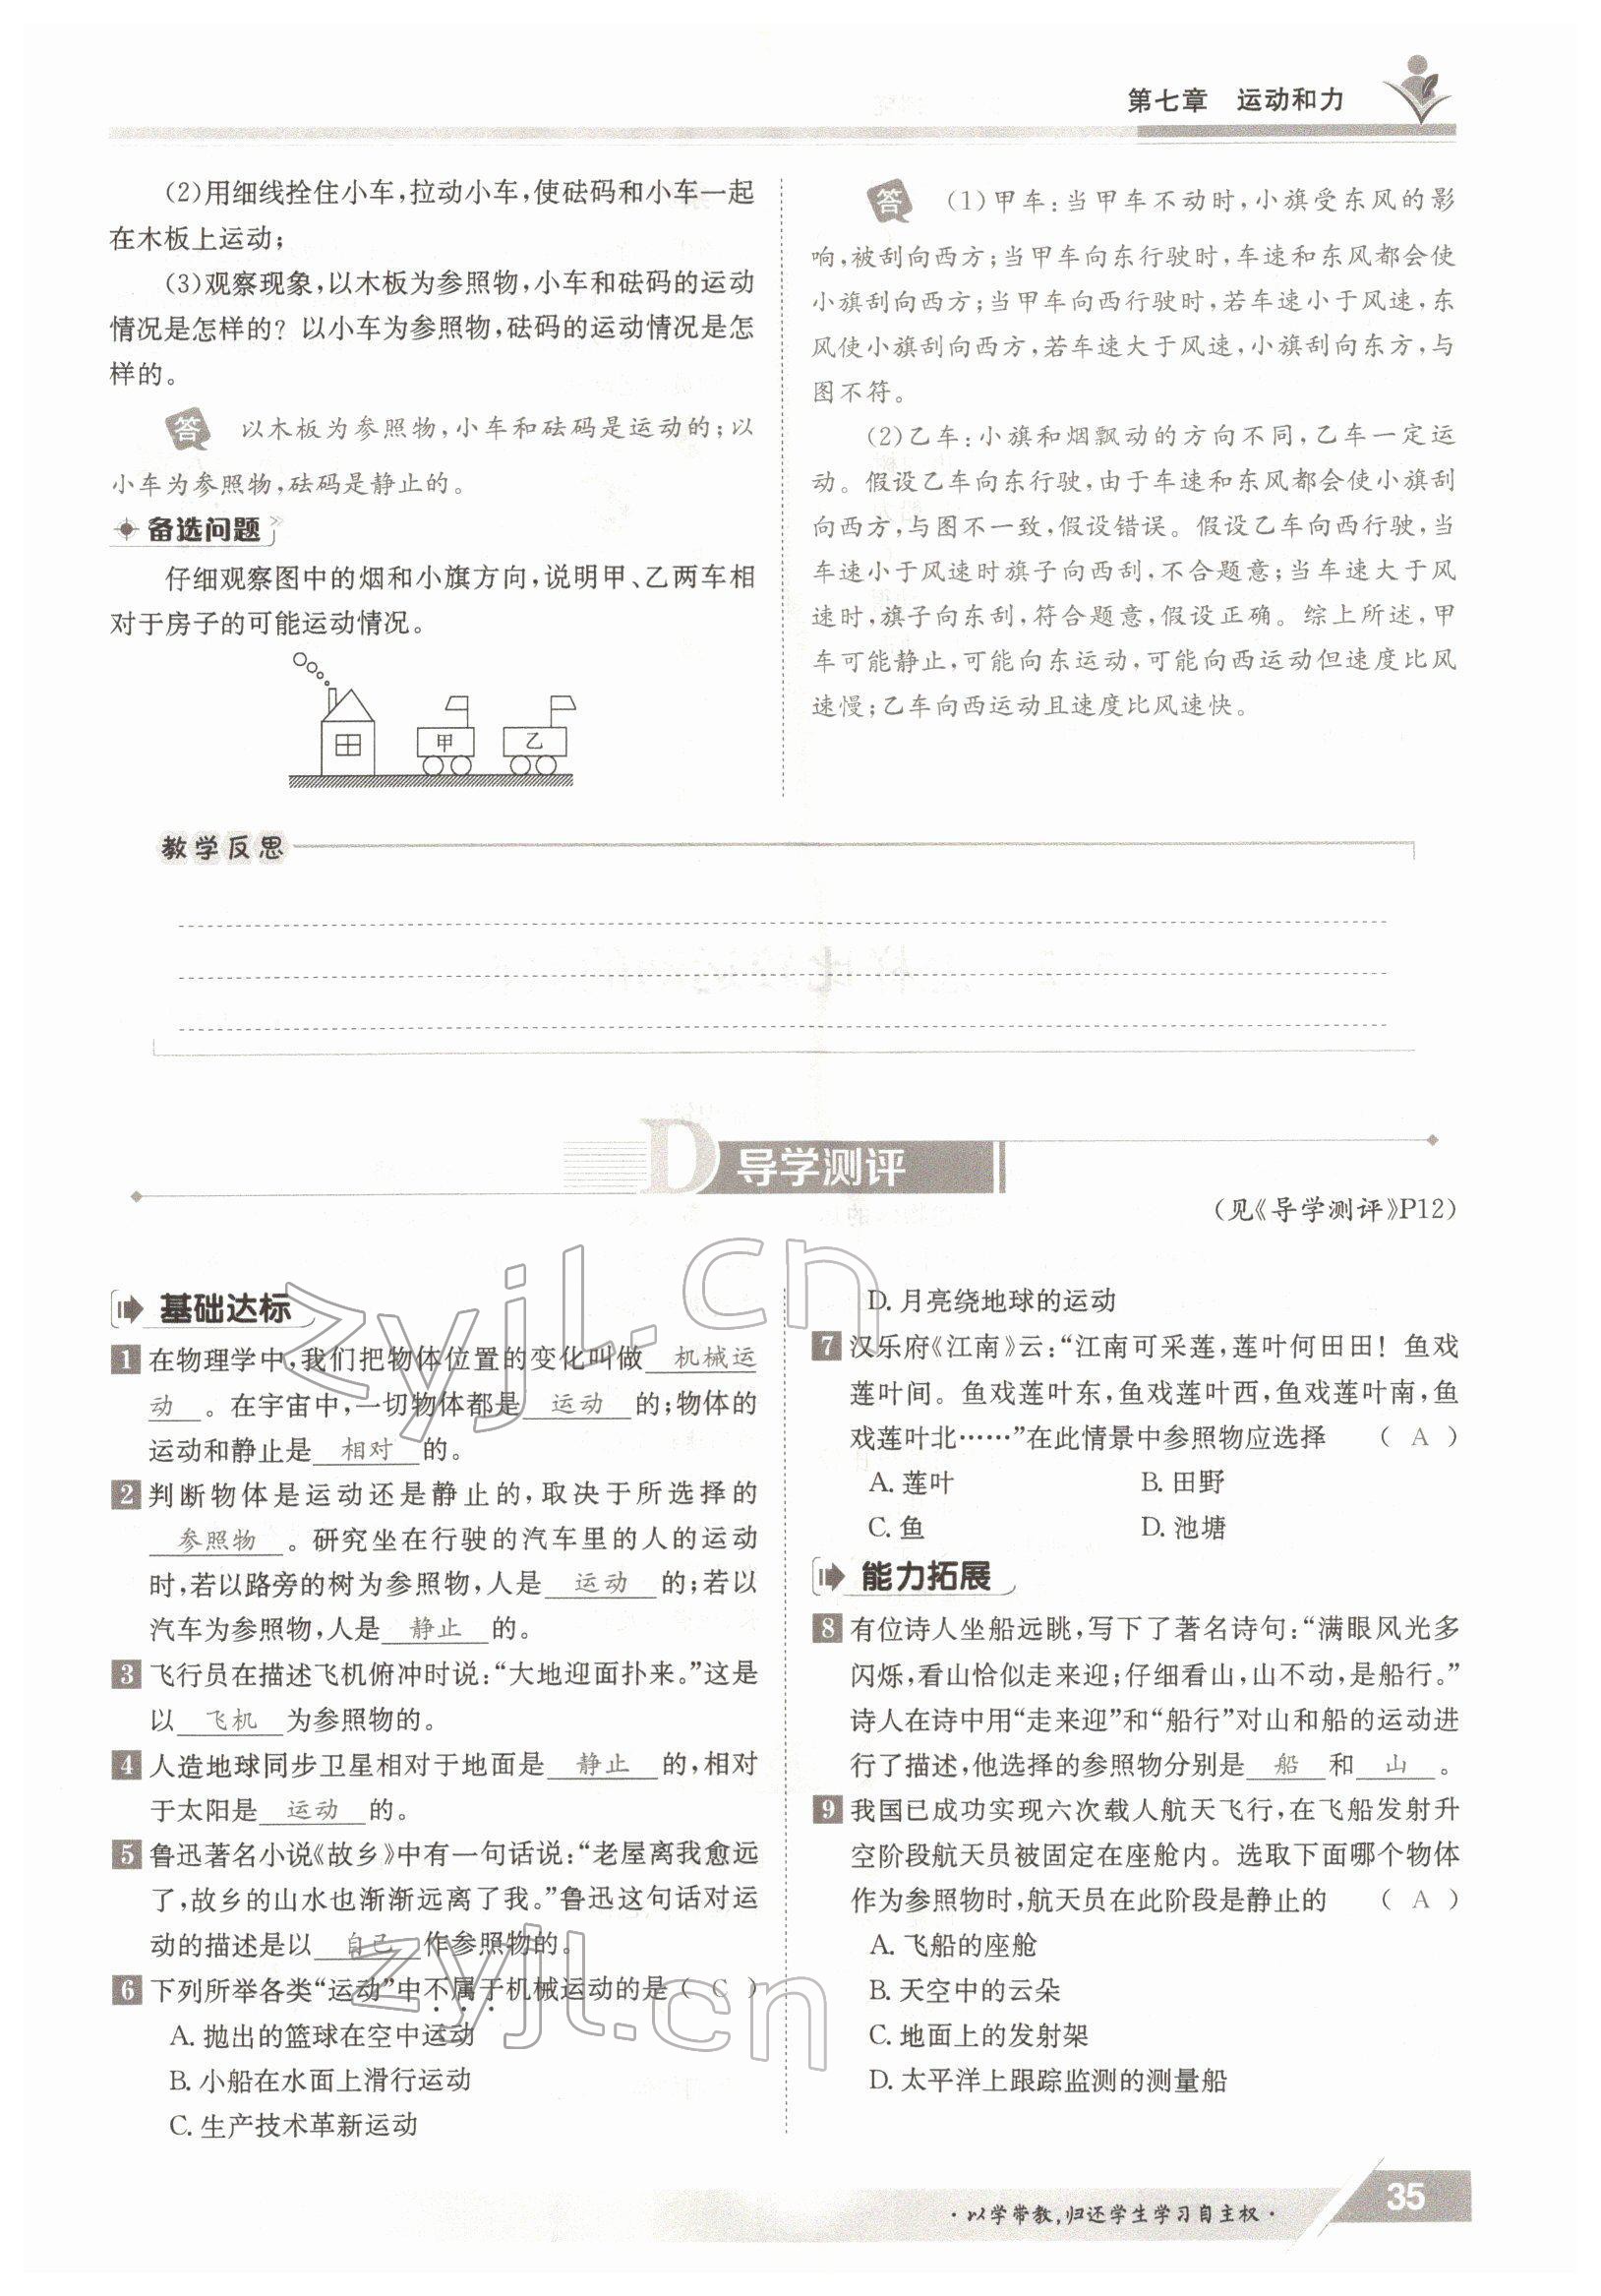 第七章 运动和力
(2)用细线拴住小车,拉动小车,使砝码和小车一起
在木板上运动;
(3)观察现象,以木板为参照物,小车和砝码的运动
情况是怎样的?以小车为参照物,砝码的运动情况是怎
样的。
答 以木板为参照物,小车和砝码是运动的;以
小车为参照物,砝码是静止的。
备选问题
仔细观察图中的烟和小旗方向,说明甲、乙两车相
对于房子的可能运动情况。
甲 乙
答 (1)甲车:当甲车不动时,小旗受东风的影
响,被刮向西方;当甲车向东行驶时,车速和东风都会使
小旗刮向西方;当甲车向西行驶时,若车速小于风速,东
风使小旗刮向西方,若车速大于风速,小旗刮向东方,与
图不符。
(2)乙车:小旗和烟飘动的方向不同,乙车一定运
动。假设乙车向东行驶,由于车速和东风都会使小旗刮
向西方,与图不一致,假设错误。假设乙车向西行驶,当
车速小于风速时旗子向西刮,不合题意;当车速大于风
速时,旗子向东刮,符合题意,假设正确。综上所述,甲
车可能静止,可能向东运动,可能向西运动但速度比风
速慢;乙车向西运动且速度比风速快。
教学反思
D 导学测评
(见《导学测评》P12)
基础达标
1 在物理学中,我们把物体位置的变化叫做 机械运
动 。在宇宙中,一切物体都是 运动 的;物体的
运动和静止是 相对 的。
2 判断物体是运动还是静止的,取决于所选择的
参照物 。研究坐在行驶的汽车里的人的运动
时,若以路旁的树为参照物,人是 运动 的;若以
汽车为参照物,人是 静止 的。
3 飞行员在描述飞机俯冲时说:“大地迎面扑来。”这是
以 飞机 为参照物的。
4 人造地球同步卫星相对于地面是 静止 的,相对
于太阳是 运动 的。
5 鲁迅著名小说《故乡》中有一句话说:“老屋离我愈远
了,故乡的山水也渐渐远离了我。”鲁迅这句话对运
动的描述是以 自己 作参照物的。
6 下列所举各类“运动”中不属于机械运动的是( C )
A. 抛出的篮球在空中运动
B. 小船在水面上滑行运动
C. 生产技术革新运动
D. 月亮绕地球的运动
7 汉乐府《江南》云:“江南可采莲,莲叶何田田!鱼戏
莲叶间。鱼戏莲叶东,鱼戏莲叶西,鱼戏莲叶南,鱼
戏莲叶北……”在此情景中参照物应选择 ( A )
A. 莲叶 B. 田野
C. 鱼 D. 池塘
能力拓展
8 有位诗人坐船远眺,写下了著名诗句:“满眼风光多
闪烁,看山恰似走来迎;仔细看山,山不动,是船行。”
诗人在诗中用“走来迎”和“船行”对山和船的运动进
行了描述,他选择的参照物分别是 船 和 山 。
9 我国已成功实现六次载人航天飞行,在飞船发射升
空阶段航天员被固定在座舱内。选取下面哪个物体
作为参照物时,航天员在此阶段是静止的 ( A )
A. 飞船的座舱
B. 天空中的云朵
C. 地面上的发射架
D. 太平洋上跟踪监测的测量船
·以学带教,归还学生学习自主权·
35
zyjl.cn
zyjl.cn